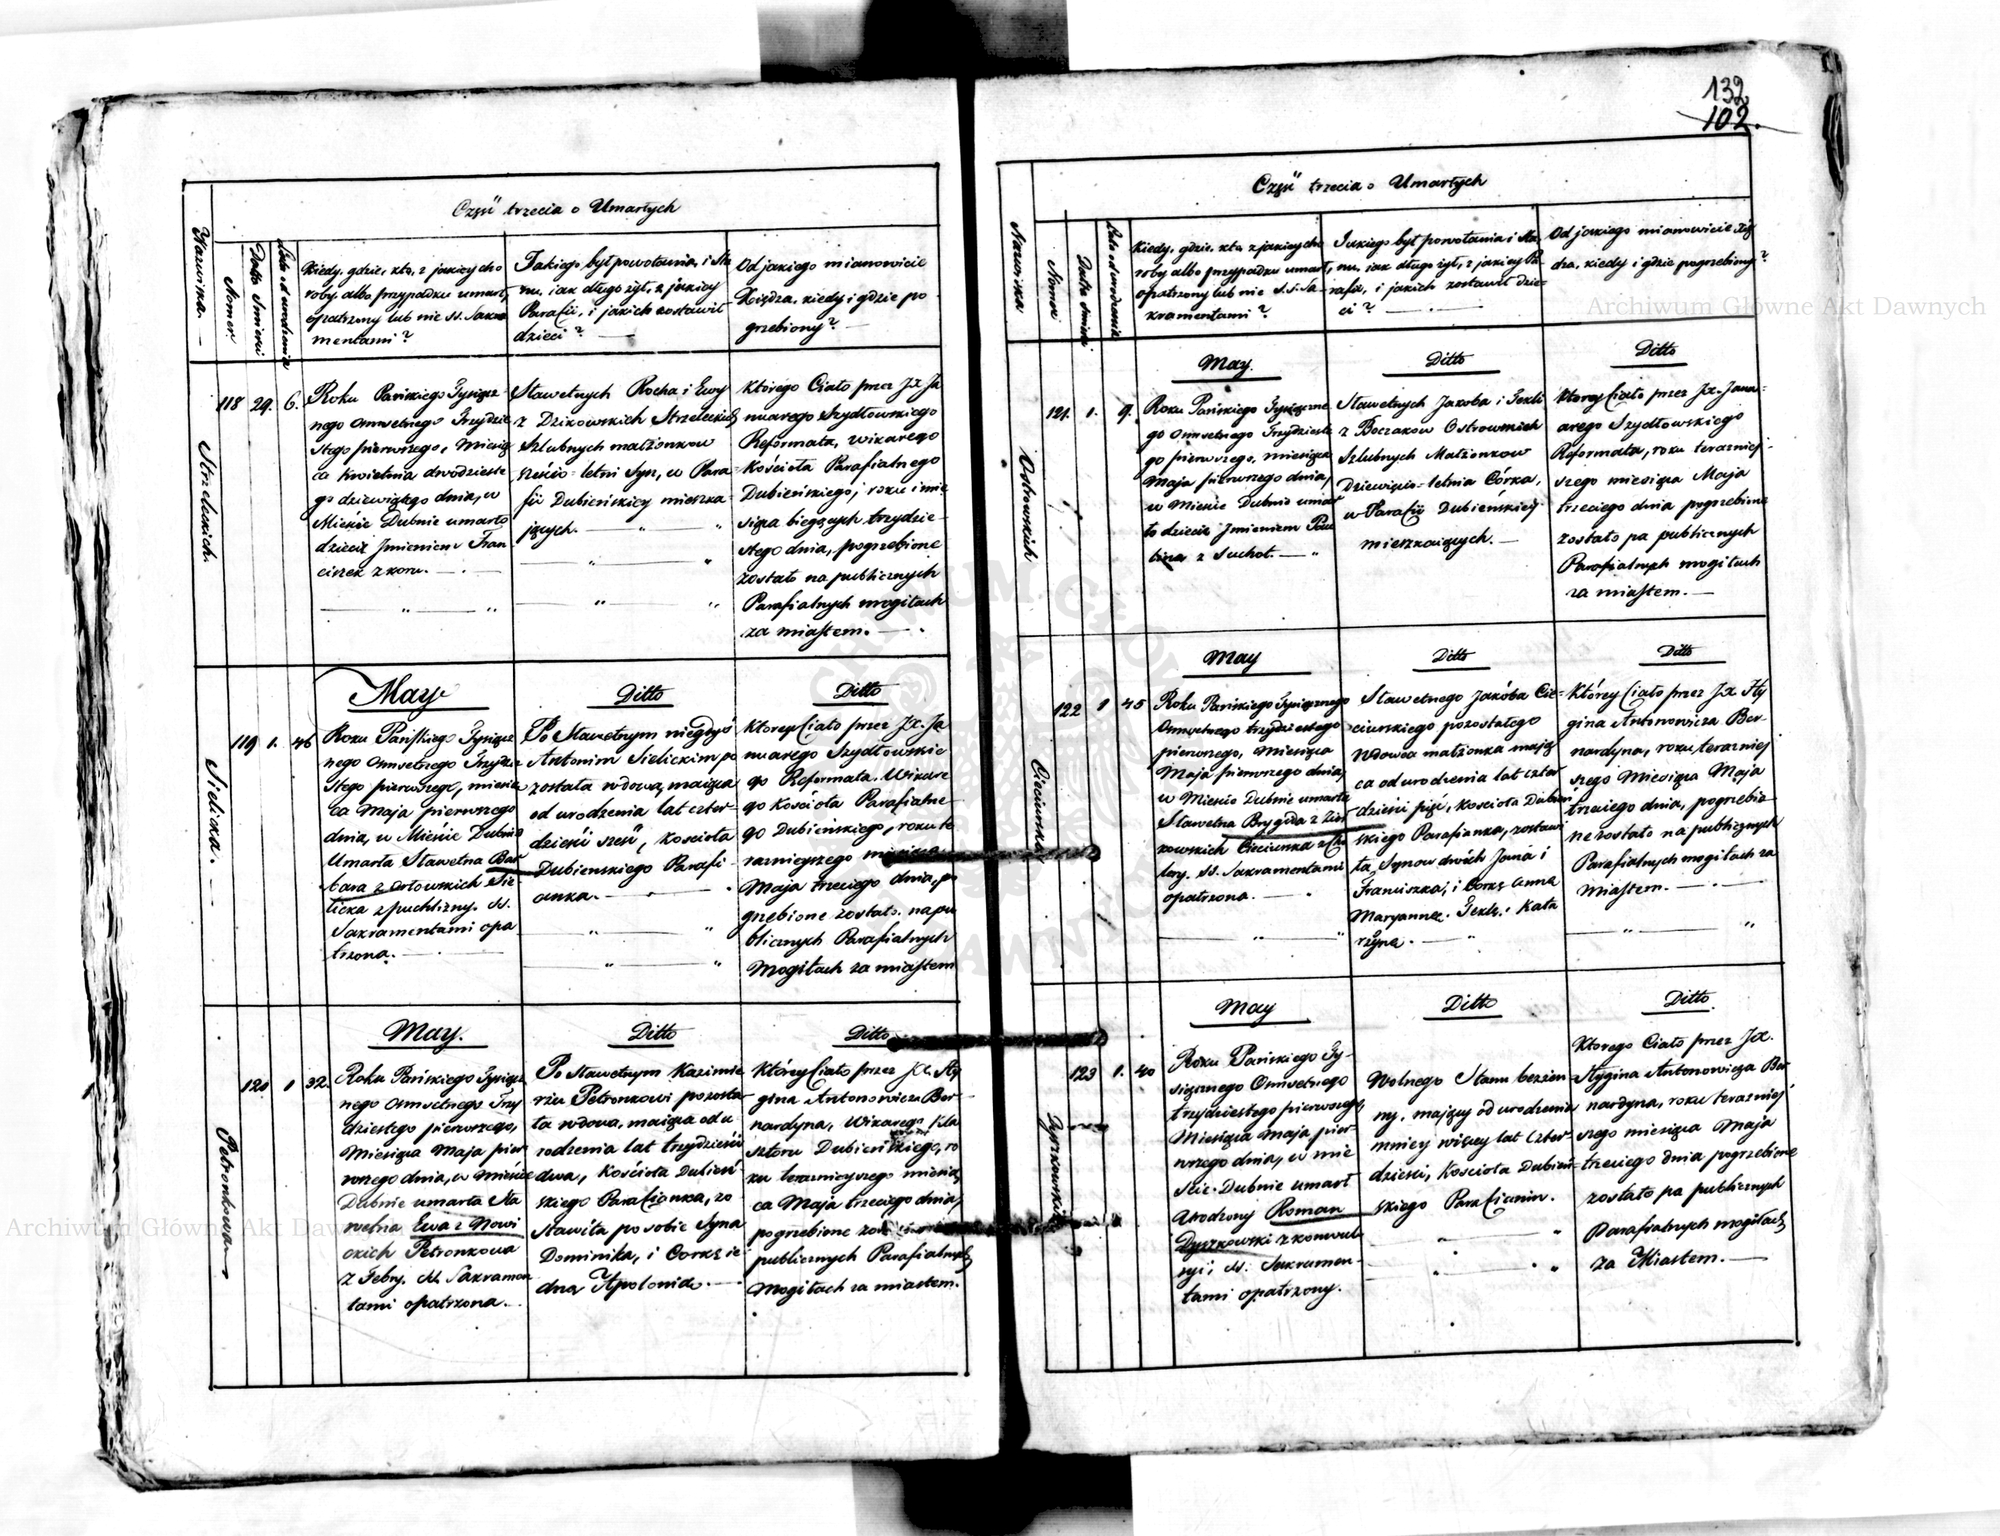 132
102.
Część trzecia o Umarłych
Nazwiska.
Numer
Datta Śmierci
Lata od urodzenia
Kiedy, gdzie, kto, z jakiey cho
roby albo przypadku umarł,
opatrzony lub nie SS. Sakra
mentami?
Jakiego był powołania, i Sta
nu, iak długo żył, z jakiey
Parafii, i jakich zostawił
dzieci?
Od jakiego mianowicie
Xiędza, kiedy i gdzie po
grzebiony?
Strzeleckich.
118
29.
6.
Roku Pańskiego Tysiącz
nego Ośmsetnego Trzydzie
stego pierwszego, Miesią
ca Kwietnia dwudzieste
go dziewiątego dnia, w
Mieście Dubnie umarło
dziecię Jmieniem Fran
ciszek z koru.
Sławetnych Rocha i Ewy
z Dzikowskich Strzeleckich
Szlubnych małżonkow
sześcio-letni Syn, w Para
fii Dubieńskiey mieszka-
jących.
Którego Ciało przez Jx. Ja
nuarego Szydłowskiego
Reformata, wikarego
Kościoła Parafialnego
Dubieńskiego, roku i mie
siąca bieżących trzydzie-
stego dnia, pogrzebione
zostało na publicznych
Parafialnych mogiłach
za miastem.
May
Ditto
Ditto
Sielicka.
119
1.
46
Roku Pańskiego Tysiącz
nego Ośmsetnego Trzydzie
stego pierwszego, miesią
ca Maja pierwszego
dnia, w Mieście Dubnie
Umarła Sławetna Bar
bara z Orłowskich Sie
licka z puchliny. SS.
Sakramentami opa
trzona.
Po Sławetnym niegdyś
Antonim Sielickim po
została wdowa, maiąca
od urodzenia lat czter-
dzieści sześć, Kościoła
Dubienskiego Parafi-
anka.
Którey Ciało przez Jx. Ja
nuarego Szydłowskie
go Reformata. Wikare
go Kościoła Parafialne
go Dubieńskiego, roku te
raznieyszego miesiąca
Maja trzeciego dnia, po
grzebione zostało. na pu
blicznych Parafialnych
Mogiłach za miastem
May.
Ditto
Ditto
Petronkowa
120
1
32.
Roku Pańskiego Tysiącz
nego Ośmsetnego Trzy
dziestego pierwszego,
Miesiąca Maja pier
wszego dnia, w Mieście
Dubnie umarła Sła
wetna Ewa z Nowi
ckich Petronkowa
z Febry. SS. Sakramen
tami opatrzona.
Po Sławetnym Kazimie
rzu Petronkowi pozosta
ła wdowa, maiąca od u
rodzenia lat trzydzieści
dwa, Kościoła Dubień
skiego Parafianka, zo
stawiła po sobie Syna
Dominika, i Corkę ie
dną Apolonię.
Którey Ciało przez JX. Hy
gina Antonowicza Ber-
nardyna, Wikarego Kla
sztoru Dubieńskiego, ro
ku teraznieyszego miesią,
ca Maja trzeciego dnia,
pogrzebione
publicznych Parafialnych
Mogiłach za miastem.
Część trzecia o Umarłych
Nazwiska
Numer
Datta śmierci
Lata od urodzenia
Kiedy, gdzie, kto, z jakiey cho
roby albo przypadku umarł,
opatrzony lub nie S.S. Sa-
kramentami?
Jakiego był powołania i Sta
nu, iak długo żył, z jakiey Pa
rafii, i jakich zostawił dzie-
ci?
Od jakiego mianowicie Xię
dza, kiedy i gdzie pogrzebiony?
May.
Ditto
Ditto
Ostrowskich
121.
1.
9.
Roku Pańskiego Tysiączne
go Ośmsetnego Trzydzieste
go pierwszego, miesiąca
Maja pierwszego dnia,
w Mieście Dubnie umar
ło dziecię Jmieniem Pau
lina z Suchot.
Sławetnych Jakoba i Tekli
z Boczakow Ostrowskich
Szlubnych Małżonkow
Dziewięcio-letnia Córka,
w Parafii Dubieńskiey
mieszkaiących.
Którey Ciało przez Jx. Janu-
arego Szydłowskiego
Reformata, roku teraźniej-
szego miesiąca Maja
trzeciego dnia pogrzebione
zostało na publicznych
Parafialnych mogiłach
za miastem.
May
Ditto
Ditto
Cieciurska
122
1
45
Roku Pańskiego Tysiącznego
Ośmsetnego trzydziestego
pierwszego, Miesiąca
Maja pierwszego dnia,
w Mieście Dubnie umarła
Sławetna Brygida z
kowskich Cieciurska z
SS. Sakramentami
opatrzona.
Sławetnego Jakóba Cie-
ciurskiego pozostałego
Wdowca małżonka mają
ca od urodzenia lat czter
dzieści pięć, Kościoła Dubień
skiego Parafianka, zostawi
ła Synow dwóch Jana i
Franciszka, i Corkę Anna
Maryanna. Tekla. Kata
rzyna.
Którey Ciało przez Jx Hy
gina Antonowicza Ber-
nardyna, roku teraźniej
szego Miesiąca Maja
trzeciego dnia, pogrzebio
ne zostało na publicznych
Parafialnych mogiłach za
Miastem.
May
Ditto
Ditto.
Dyszkowski
123
1.
40
Roku Pańskiego Ty-
siącznego Ośmsetnego
trzydziestego pierwszego,
Miesiąca Maja, pier
wszego dnia, w mie
ście Dubnie umarł
Urodzony Roman
Dyszkowski z konwul
syi; SS. Sakramen-
tami opatrzony.
Wolnego Stanu bezżen-
ny, mający od urodzenia
mniey więcey lat czter-
dzieści, Kościoła Dubień-
skiego Parafianin.
Ktorego Ciało przez Jx.
Hygina Antonowicza Ber
nardyna, roku teraźniej
szego miesiąca Maja
trzeciego dnia pogrzebione
zostało na publicznych
Parafialnych mogiłach
za Miastem.
Archiwum Główne Akt Dawnych
Archiwum Główne Akt Dawnych